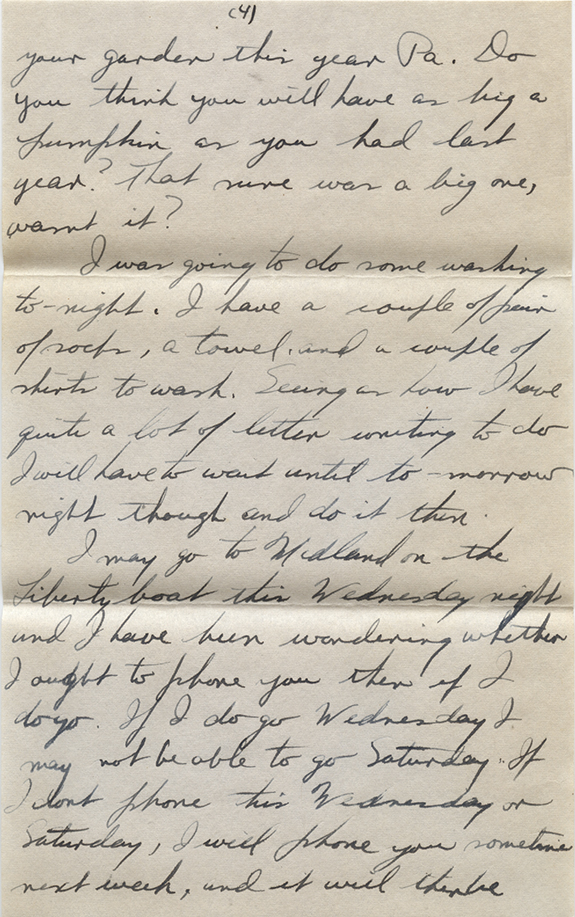 (4)
your garden this year Pa. Do
you think you will have as big a
pumpkin as you had last
year? That sure was a big one,
wasnt it?
I was going to do some washing
to-night. I have a couple of pair
of socks, a towel, and a couple of
shirts to wash. Seeing as how I have
quite a lot of letter writing to do
I will have to wait until to-morrow
night though and do it then.
I may go to Midland on the
Liberty boat this Wednesday night
and I have been wondering whether
I ought to phone you then if I
do go. If I do go Wednesday I
may not be able to go Saturday. If
I dont phone this Wednesday or
Saturday, I will phone you sometime
next week, and it will then be